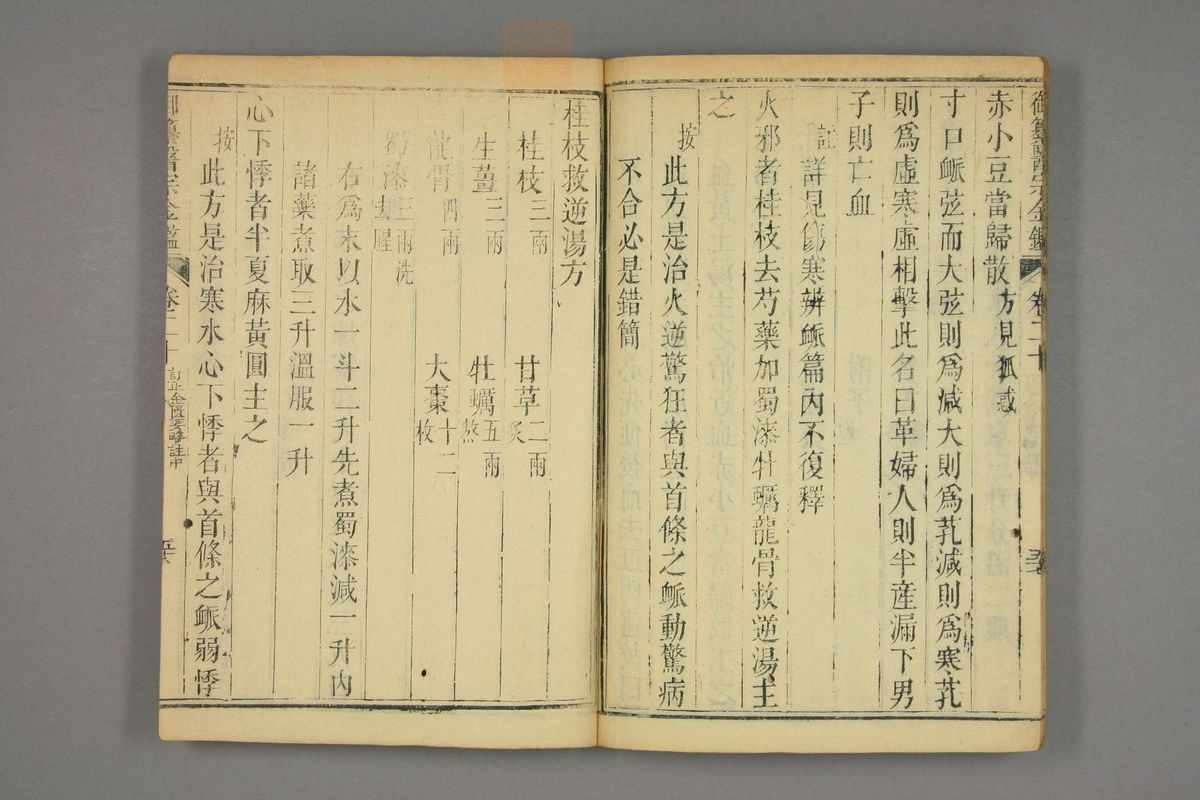 御纂醫宗金鑑 卷二十
赤小豆當歸散方見狐惑
寸口脈弦而大弦則爲減大則爲芤減則爲寒芤
則爲虛寒虛相擊此名曰革婦人則半產漏下男
子則亡血
註詳見傷寒辨脈篇內不復釋
火邪者桂枝去芍藥加蜀漆牡蠣龍骨救逆湯主
之
按此方是治火逆驚狂者與首條之脈動驚病
不合必是錯簡
桂枝救逆湯方
桂枝三兩 甘草二兩炙
生薑三兩 牡蠣五兩熬
龍骨四兩 大棗十二枚
蜀漆三兩洗去腥
右爲末以水一斗二升先煮蜀漆減二升內
諸藥煮取三升溫服一升
心下悸者半夏麻黃圓主之
按此方是治寒水心下悸者與首條之脈弱悸
御纂醫宗金鑑 卷二十 訂正金匱要畧註中